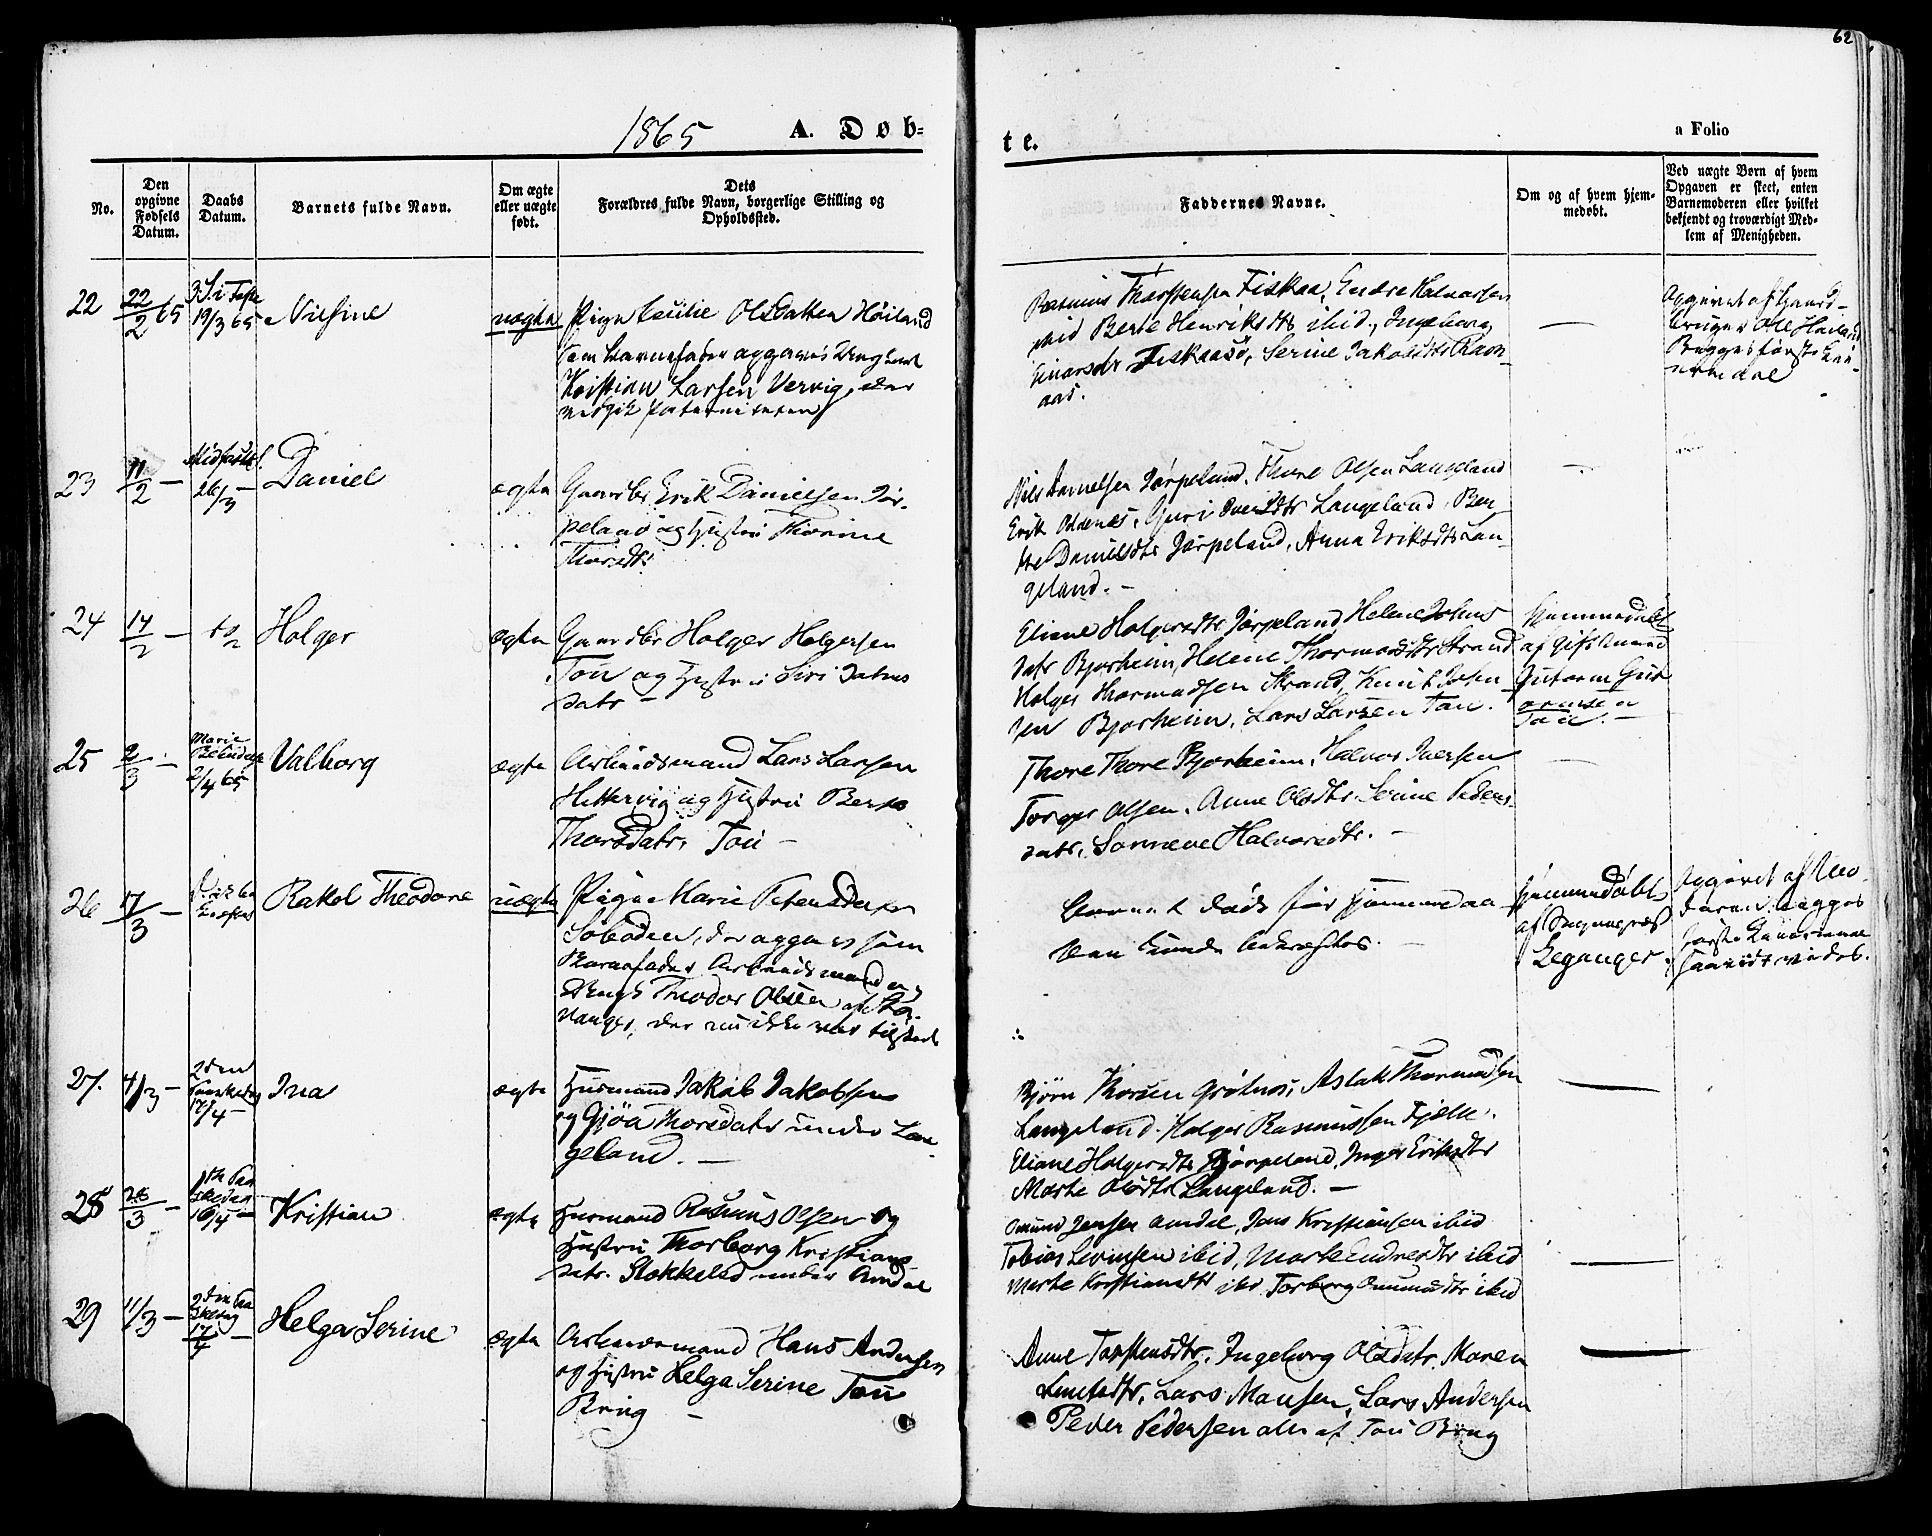 62
1865 A. Døb-
te.
a Folio
No.
Den opgivne Fødsels Datum.
Daabs Datum.
Barnets fulde Navn.
Om ægte eller uægte født.
Dets Forældres fulde Navn, borgerlige Stilling og Opholdssted.
Faddernes Navne.
Om og af hvem hjemmedøbt.
Ved uægte Børn af hvem Opgaven er skeet, enten Barnemoderen eller hvilket bekjendt og troværdigt Medlem af Menigheden.
22 22/2 65 3 S. i Faste 19/3 65 uægte Pige Cecilie Olsdatter Höiland
som Barnefader opgaves Ungkarl
Kristian Larsen Vervig, der
vedgik paterniteten
Rasmus Thorstensen Fiskaa, Endre Halvorsen
ibid Berte Henriksdtr ibid., Ingeborg
Einarsdtr Fiskaaø, Serine Jakobsdtr Ravn-
aas.
Opgivet af Gaard-
bruger Ole Høiland
23 11/2 — Midfaste 26/3 Daniel ægte Gaardbr Erik Danielsen Jör-
peland og Hustru Thorine
Thorsdtr
Nils Danielsen Jörpeland, Thore Olsen Langeland
Erik Odenæs, Guri Iversdtr Langeland, Ber-
the Danielsdtr Jørpeland, Anna Eriksdtr Lan-
geland. —
24 14/2 — Holger ægte Gaardbr Holger Holgersen
Tou og Hustru Siri Johns
datr —
Eliene Holgersdtr Jørpeland Helene Johns
datr Bjørheim, Helene Thormodsdtr Strand
Holger Thormodsen Strand, Knut John
sen Bjørheim, Lars Larsen Tou.
Hjemmedøbt
af Gift Mand
Gutorm Gut
ormsen
Tou. —
25 2/3 — Marie Bebudelse 2/4 65 Valborg ægte Arbeidsmand Lars Larsen
Hettervig og Hustru Berte
Thorsdatr, Tou —
Thore Thore Bjørheim, Halvor Iversen
Torger Olsen, Anne Olsdtr Serine Peders-
datr, Sønneve Halvorsdtr. —
26 17/3 — Rakel Theodore uægte Pige Marie Petersdatr
Soboden, der opgav som
Barnefader Arbeidsmand og
Ungk Theodor Olsen af Sta-
vanger, der nu ikke var tilstede
Barnet døde før Hjemmedaa
ben kunde bekræftes. —
Hjemmedøbt
af
Leganger.
Opgivet af Mo-
deren
27. 4/3 — 2den Paaskedag 17/4 — Ina ægte Husmand Jakob Jakobsen
og Gjøa Thorsdatr under Lan-
geland. —
Bjørn Thorsen Grötnes, Aslak Thormodsen
Langeland. Holger Rasmussen Fjelde.
Eliane Holgersdtr Jørpeland, Inger Eriksdtr
Marte Olsdtr Langeland. —
28 26/3 — 1ste Paaskedag 16/4 — Kristian ægte Husmand Rasmus Olsen og
Hustru Thorborg Kristians
datr. Stokkelad under Amdal
Omund Jensen Amdal, Jens Kristiansen ibid
Tobias Sevrinsen ibid, Marte Endresdtr ibid
Marte Kristiansdtr ibd Torborg Omundsdtr ibid
29 11/3 — 2den Paaskedag 17/4 — Helga Serine ægte Arbeidsmand Hans Andersen
og Hustru Helga Serine Tou
Brug —
Anne Torstensdtr, Ingeborg Olsdatr, Maren
Knutsdtr, Lars Mausen, Lars Andersen
Peder Pedersen alle af Tou Brug